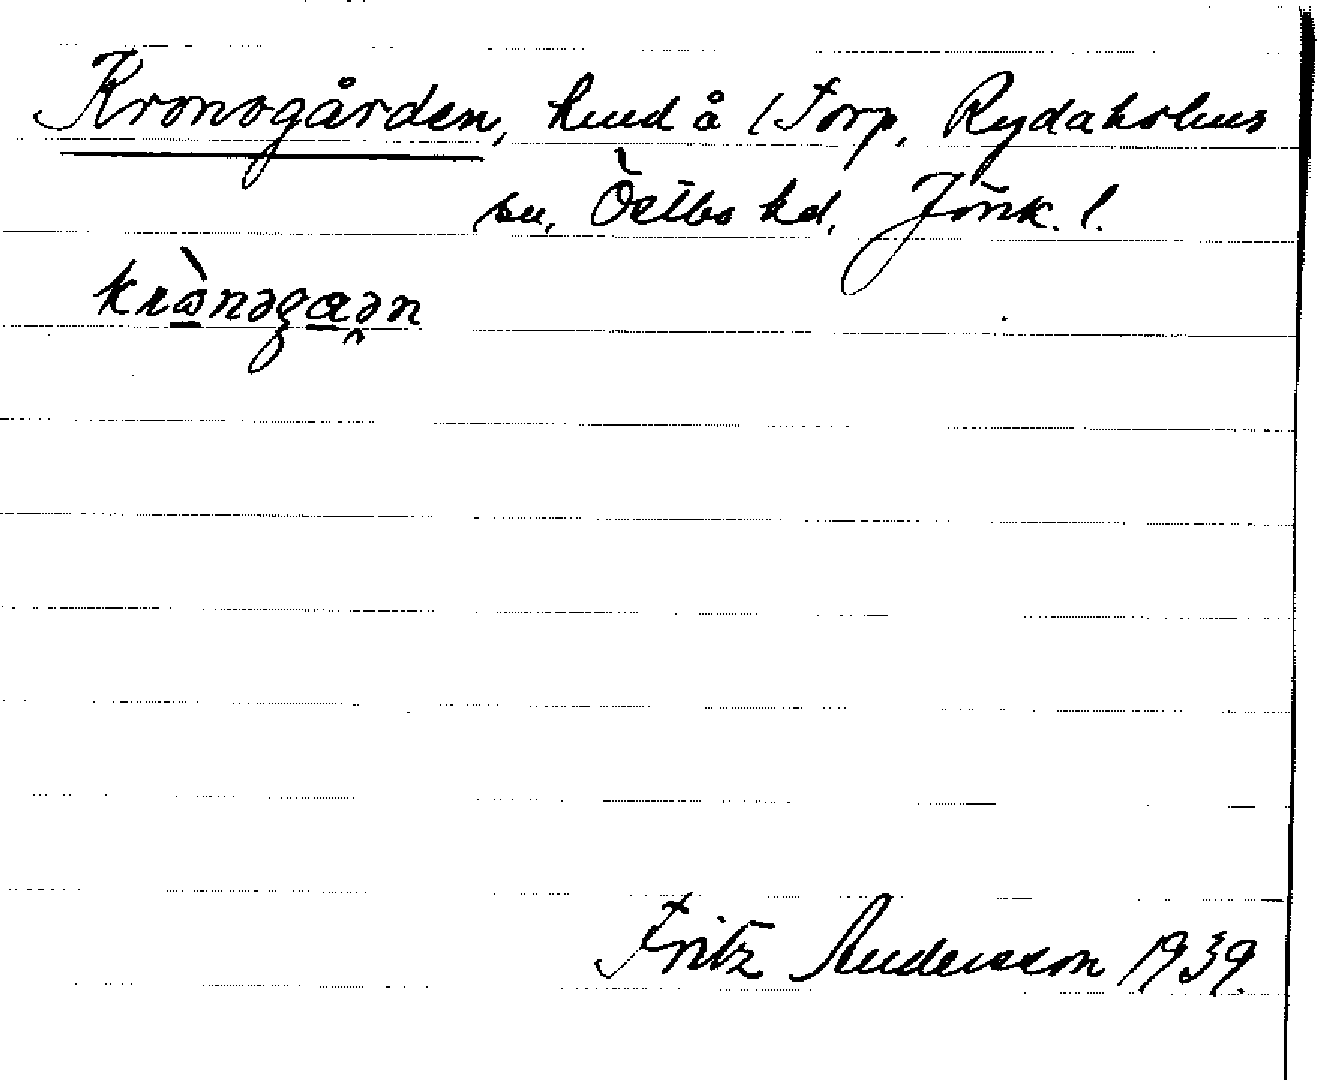 Kronogården, hmd å 1 Torp, Rydaholms
sn, Östbo hd, Jönk. l.
krɷ̀nəgɑən
Fritz Andersson 1939.